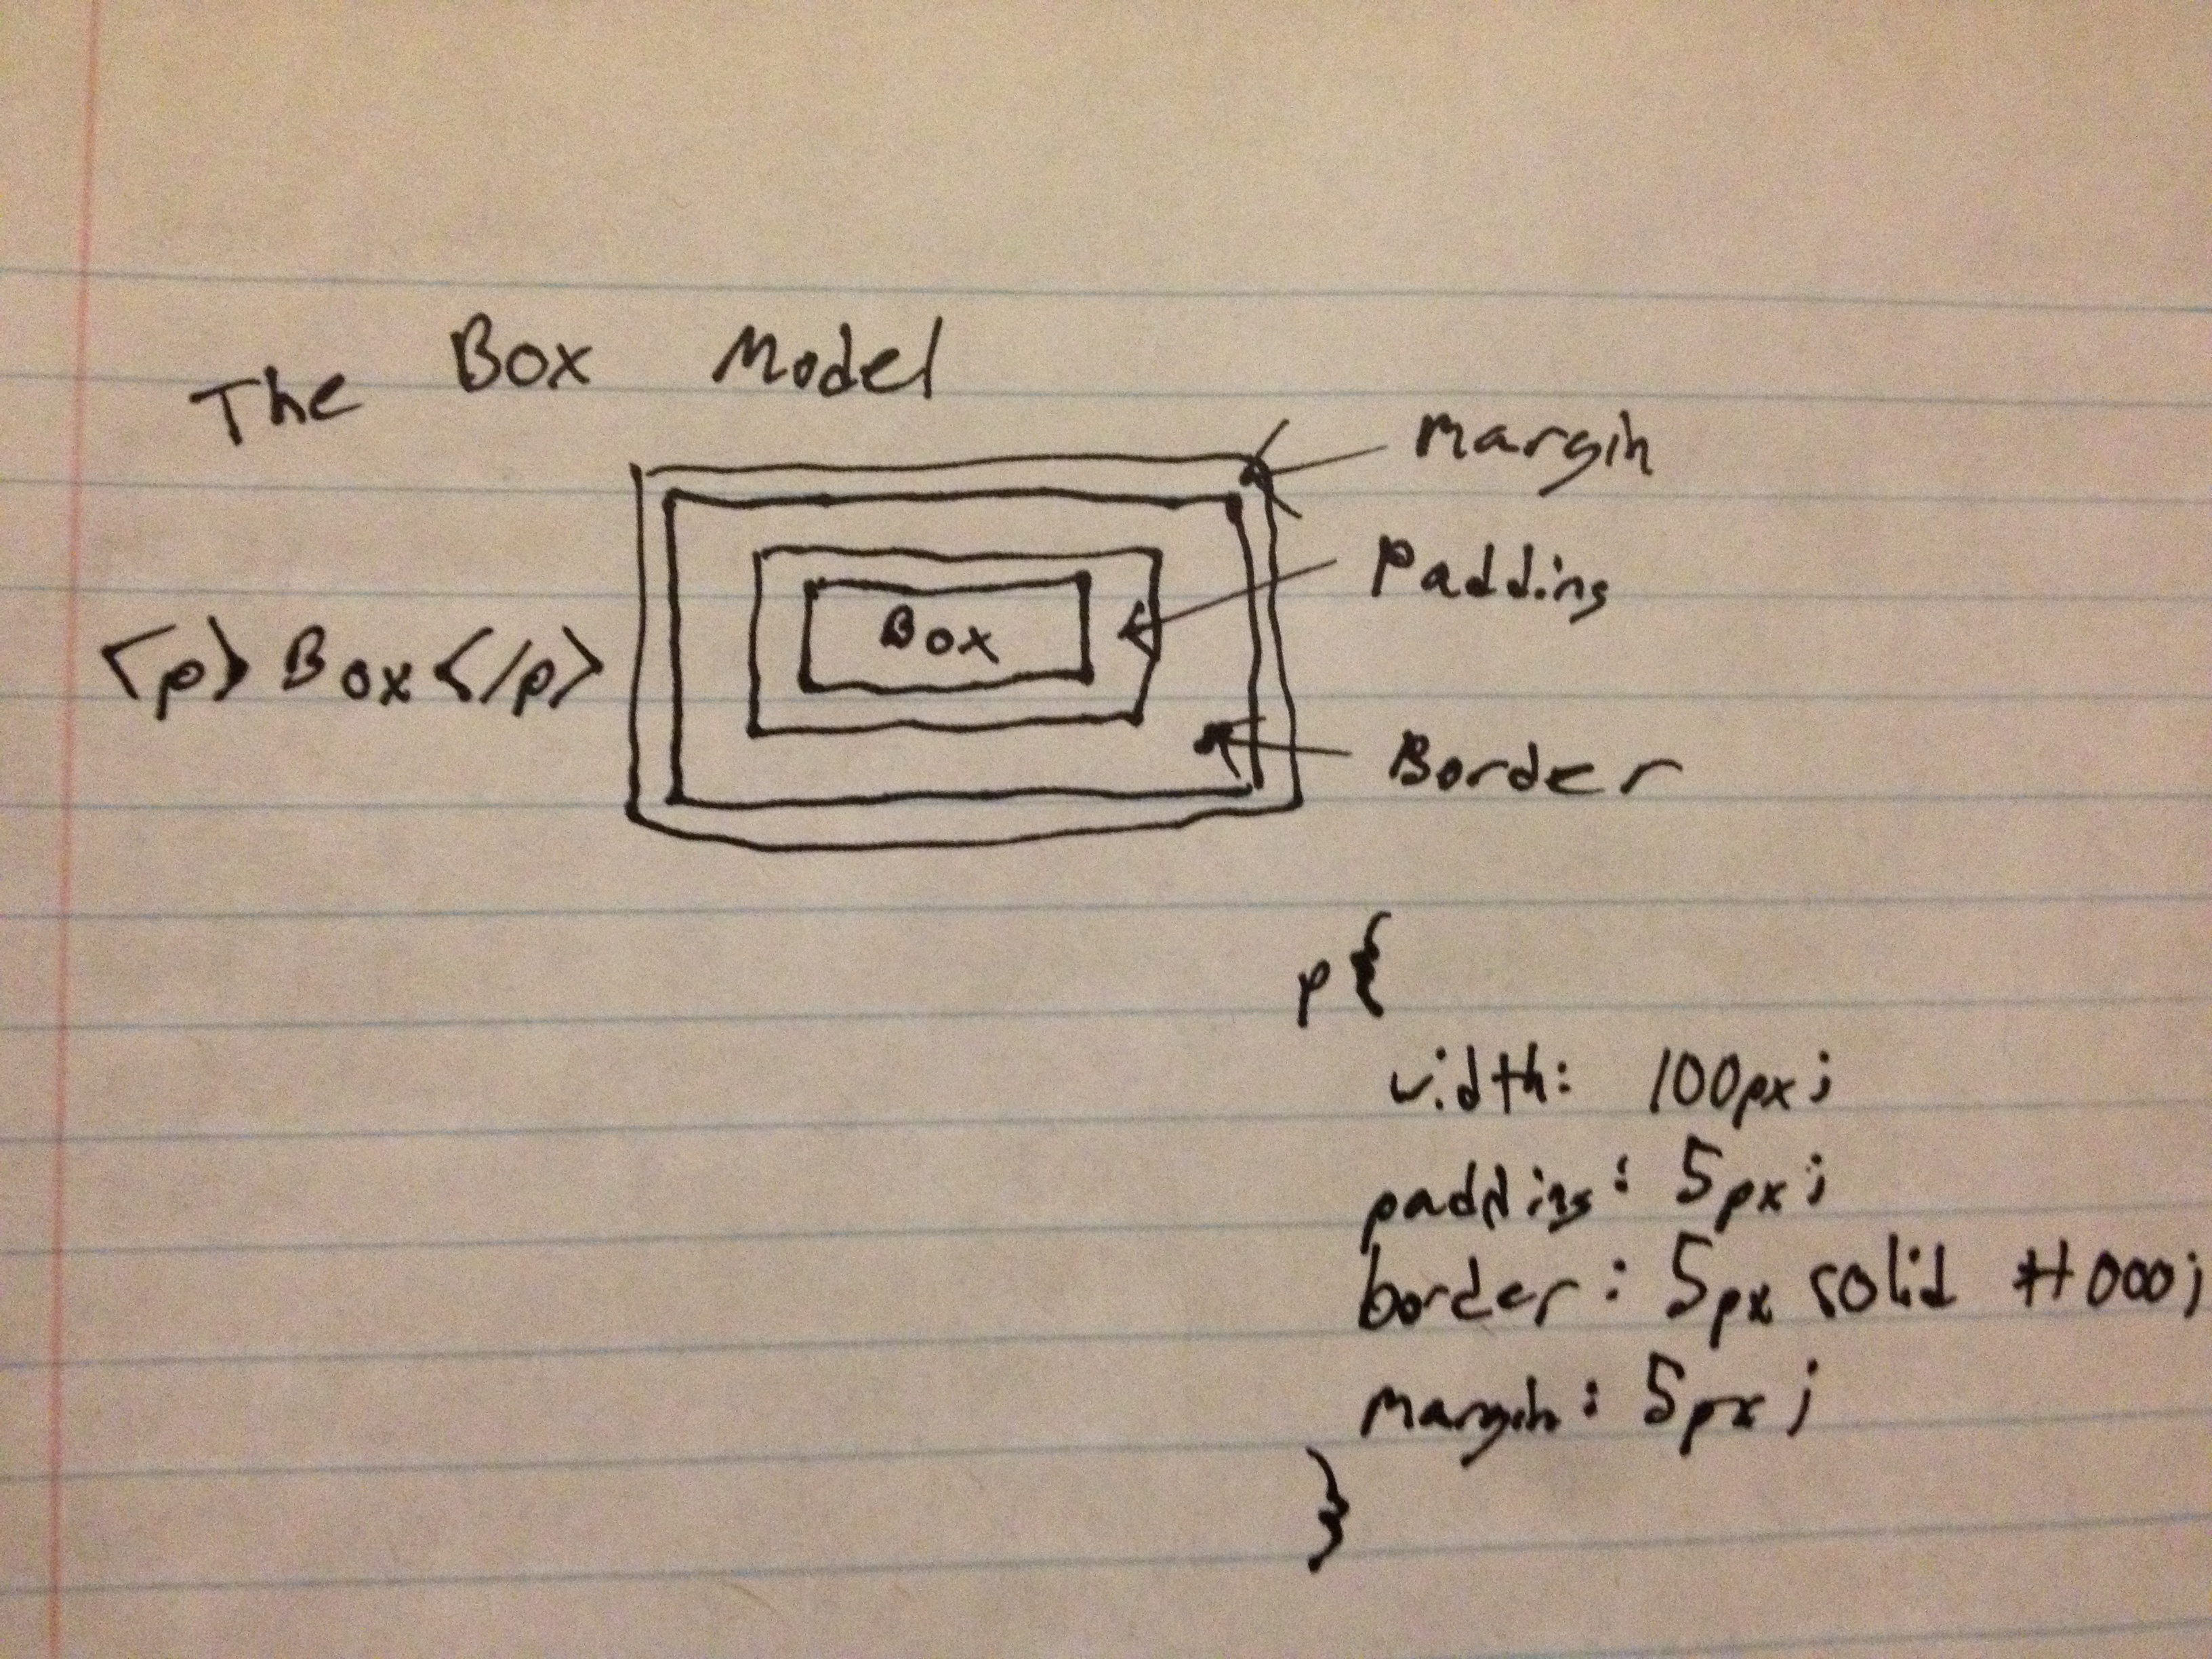 The Box Model
Margin
<p> Box </p>
Box
Padding
Border
p {
width: 100px;
padding: 5px;
border: 5px solid #000;
margin: 5px;
}